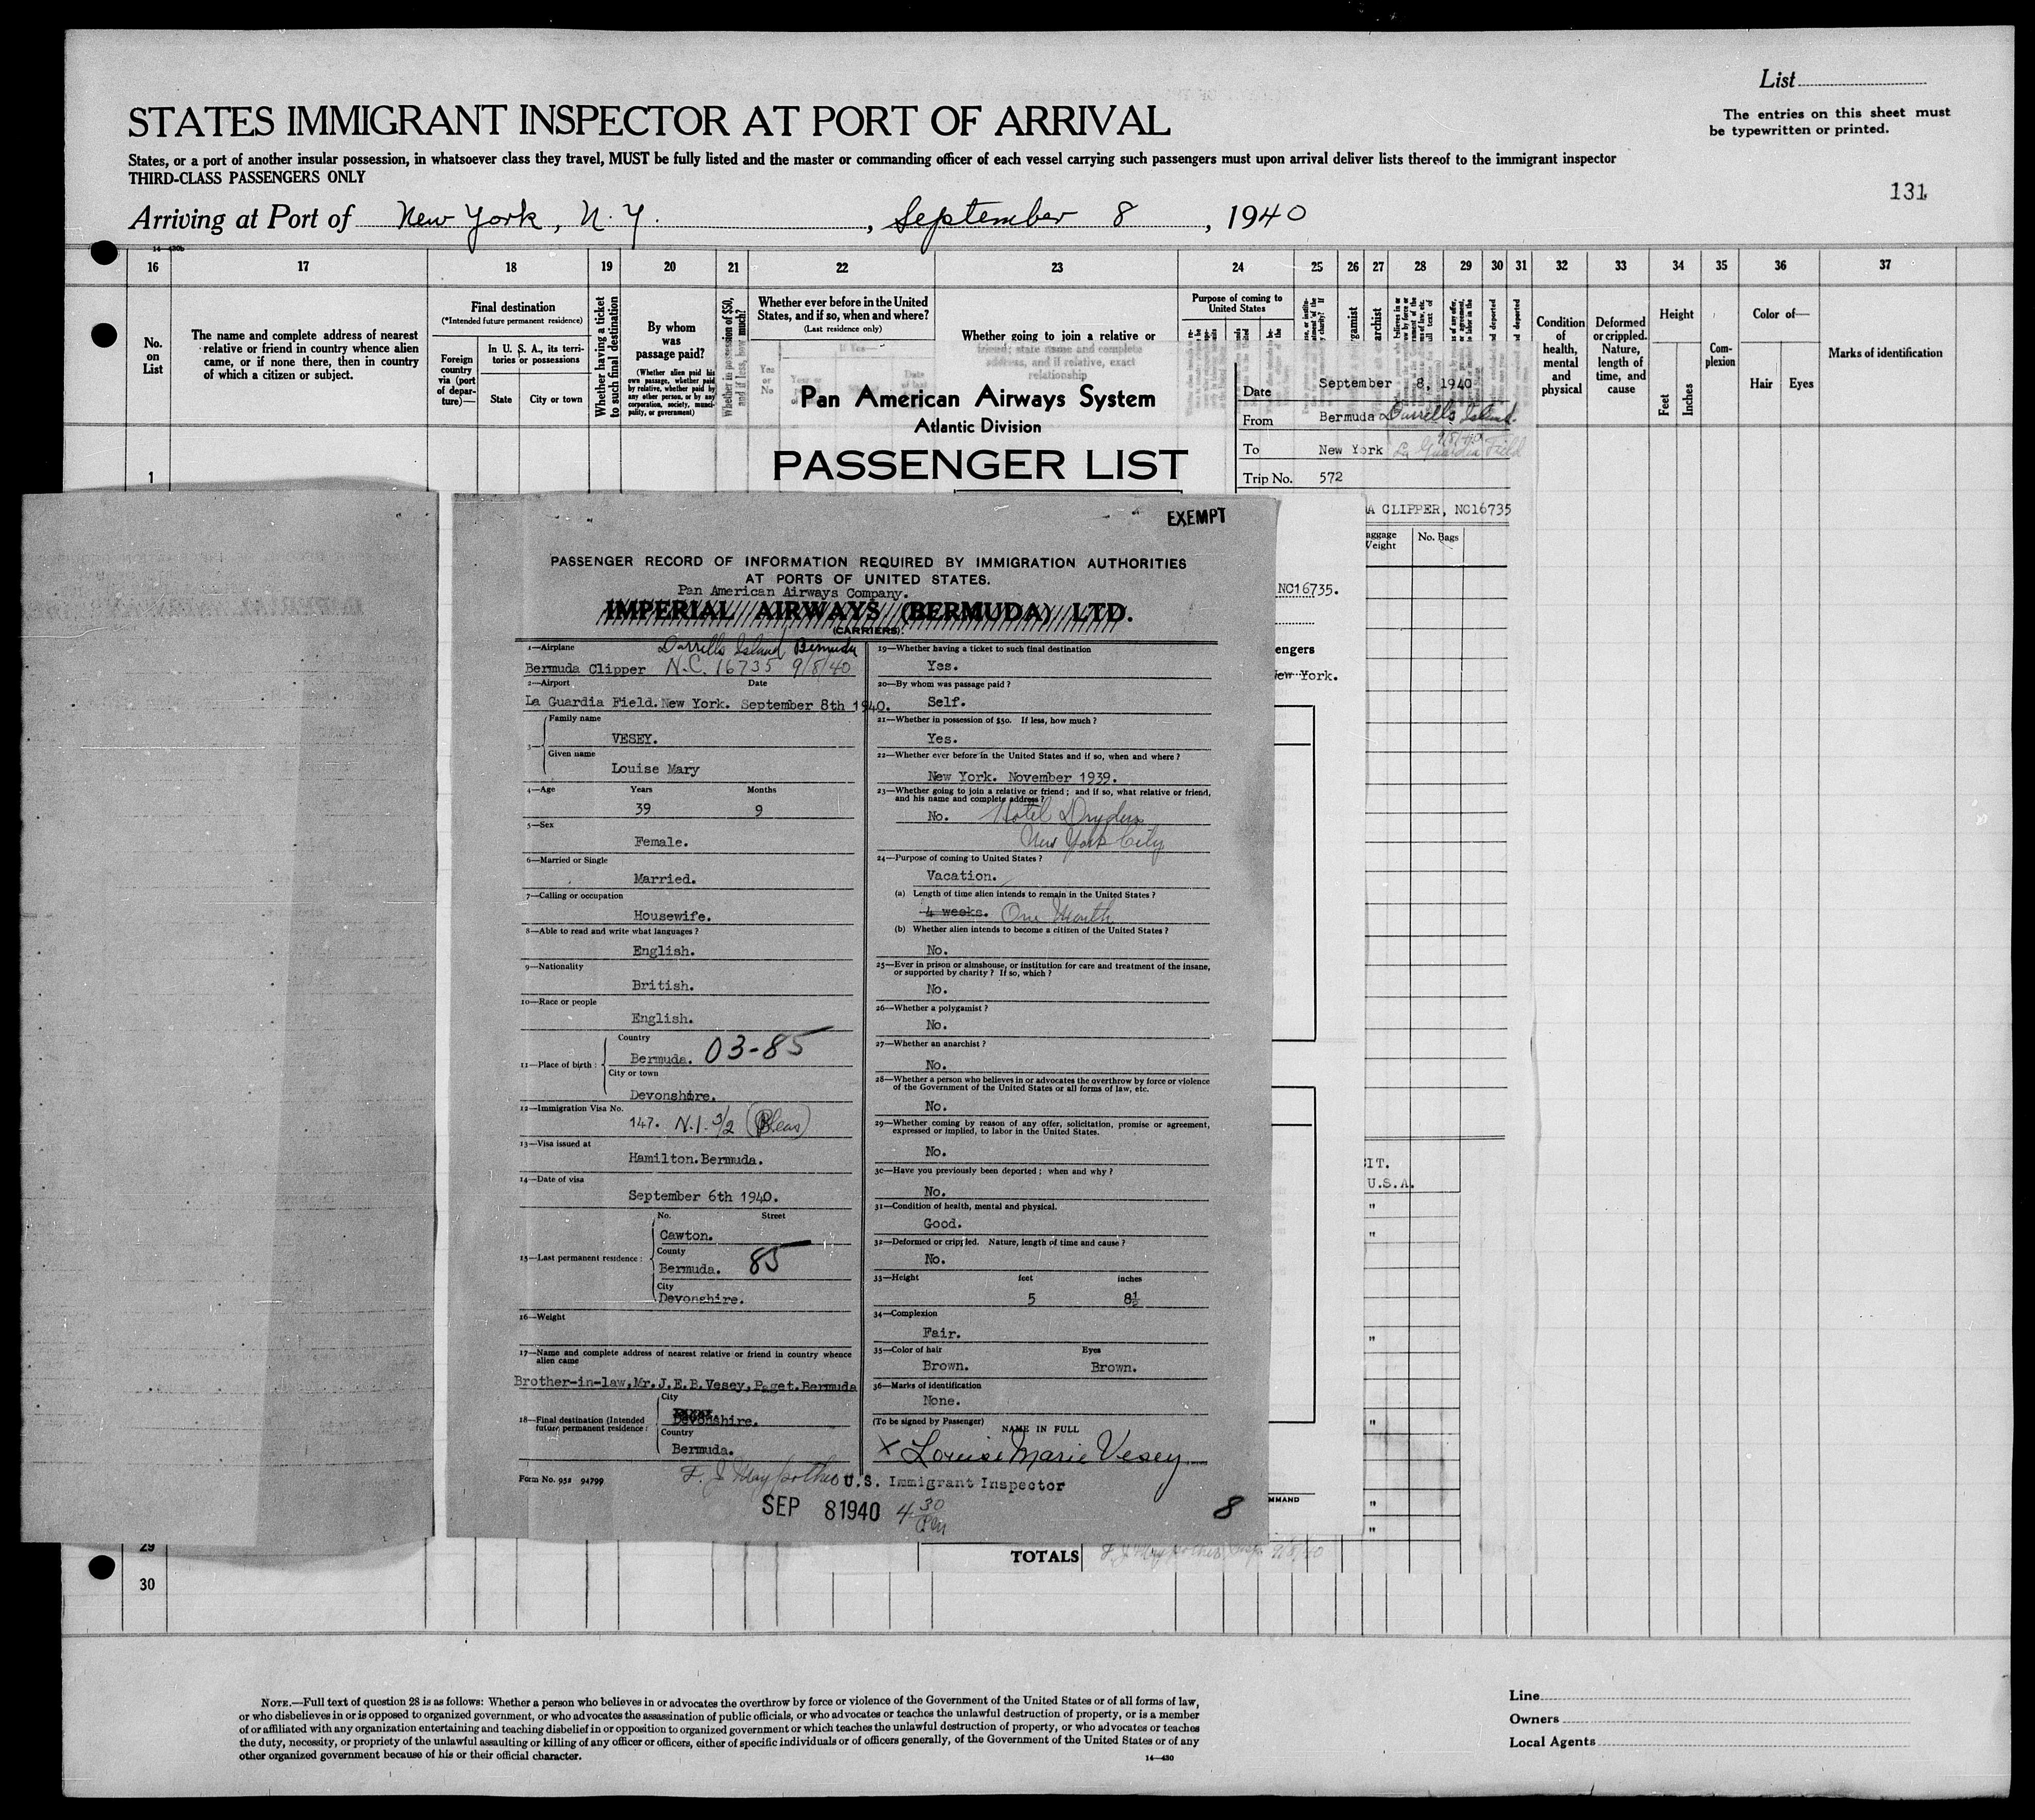 List
STATES IMMIGRANT INSPECTOR AT PORT OF ARRIVAL
The entries on this sheet must
be typewritten or printed.
States, or a port of another insular possession, in whatsoever class they travel, MUST be fully listed and the master or commanding officer of each vessel carrying such passengers must upon arrival deliver lists thereof to the immigrant inspector
THIRD-CLASS PASSENGERS ONLY
131
Arriving at Port of New York, N. Y., September 8, 1940
16 17 18 19 20 21 22 23 24 25 26 27 28 29 30 31 32 33 34 35 36 37
No. on List
The name and complete address of nearest
relative or friend in country whence alien
came, or if none there, then in country
of which a citizen or subject.
Final destination
(*Intended future permanent residence)
Foreign country via (port of departure)—
In U. S. A., its territories or possessions
State
City or town
Whether having a ticket to such final destination
By whom was passage paid?
(Whether alien paid his own passage, whether paid by relative, whether paid by any other person, or by any corporation, society, municipality, or government)
Whether in possession of $50, and if less, how much?
Whether ever before in the United
States, and if so, when and where?
(Last residence only)
If Yes—
Yes or No
Whether going to join a relative or
friend; state name and complete
address, and if relative, exact
relationship
Purpose of coming to
United States
Condition of health, mental and physical
Deformed or crippled. Nature, length of time, and cause
Height
Feet
Inches
Complexion
Color of—
Hair
Eyes
Marks of identification
1
Pan American Airways System
Atlantic Division
PASSENGER LIST
Date September 8, 1940
From Bermuda Darrells Island.
9/8/40
To New York La Guardia Field
Trip No. 572
A CLIPPER, NC16735
No. Bags
NC16735.
engers
New York.
IT.
U.S.A.
"
"
"
"
"
"
MMAND
EXEMPT
PASSENGER RECORD OF INFORMATION REQUIRED BY IMMIGRATION AUTHORITIES
AT PORTS OF UNITED STATES.
Pan American Airways Company.
IMPERIAL AIRWAYS (BERMUDA) LTD.
(CARRIERS).
1—Airplane Darrells Island Bermuda
Bermuda Clipper N.C. 16735 9/8/40
2—Airport Date
La Guardia Field. New York. September 8th 1940.
3—
Family name
VESEY.
Given name
Louise Mary
4—Age Years Months
39 9
5—Sex
Female.
6—Married or Single
Married.
7—Calling or occupation
Housewife.
8—Able to read and write what languages?
English.
9—Nationality
British.
10—Race or people
English.
11—Place of birth:
Country
Bermuda. 03-85
City or town
Devonshire.
12—Immigration Visa No.
147. N.I. 3/2
13—Visa issued at
Hamilton.Bermuda.
14—Date of visa
September 6th 1940.
15—Last permanent residence:
No. Street
Cawton.
County
Bermuda. 85
City
Devonshire.
16—Weight
17—Name and complete address of nearest relative or friend in country whence
alien came
Brother-in-law,Mr.J.E.B.Vesey,Paget.Bermuda
18—Final destination (Intended
future permanent residence:
City
Devonshire.
Country
Bermuda.
Form No. 951 94799
19—Whether having a ticket to such final destination
Yes.
20—By whom was passage paid?
Self.
21—Whether in possession of $50. If less, how much?
Yes.
22—Whether ever before in the United States and if so, when and where?
New York. November 1939.
23—Whether going to join a relative or friend; and if so, what relative or friend,
and his name and complete address?
No. Hotel Dryden
New York City
24—Purpose of coming to United States?
Vacation.
(a) Length of time alien intends to remain in the United States?
4 weeks. One Month
(b) Whether alien intends to become a citizen of the United States?
No.
25—Ever in prison or almshouse, or institution for care and treatment of the insane,
or supported by charity? If so, which?
No.
26—Whether a polygamist?
No.
27—Whether an anarchist?
No.
28—Whether a person who believes in or advocates the overthrow by force or violence
of the Government of the United States or all forms of law, etc.
No.
29—Whether coming by reason of any offer, solicitation, promise or agreement,
expressed or implied, to labor in the United States.
No.
30—Have you previously been deported; when and why?
No.
31—Condition of health, mental and physical.
Good.
32—Deformed or crippled. Nature, length of time and cause?
No.
33—Height feet inches
5 8½
34—Complexion
Fair.
35—Color of hair Eyes
Brown. Brown.
36—Marks of identification
None.
(To be signed by Passenger)
NAME IN FULL
X Louise Marie Vesey
U.S. Immigrant Inspector
SEP 8 1940 4 30 PM
8
29
30
TOTALS
NOTE.—Full text of question 28 is as follows: Whether a person who believes in or advocates the overthrow by force or violence of the Government of the United States or of all forms of law,
or who disbelieves in or is opposed to organized government, or who advocates the assassination of public officials, or who advocates or teaches the unlawful destruction of property, or is a member
of or affiliated with any organization entertaining and teaching disbelief in or opposition to organized government or which teaches the unlawful destruction of property, or who advocates or teaches
the duty, necessity, or propriety of the unlawful assaulting or killing of any officer or officers, either of specific individuals or of officers generally, of the Government of the United States or of any
other organized government because of his or their official character.
14—430
Line
Owners
Local Agents